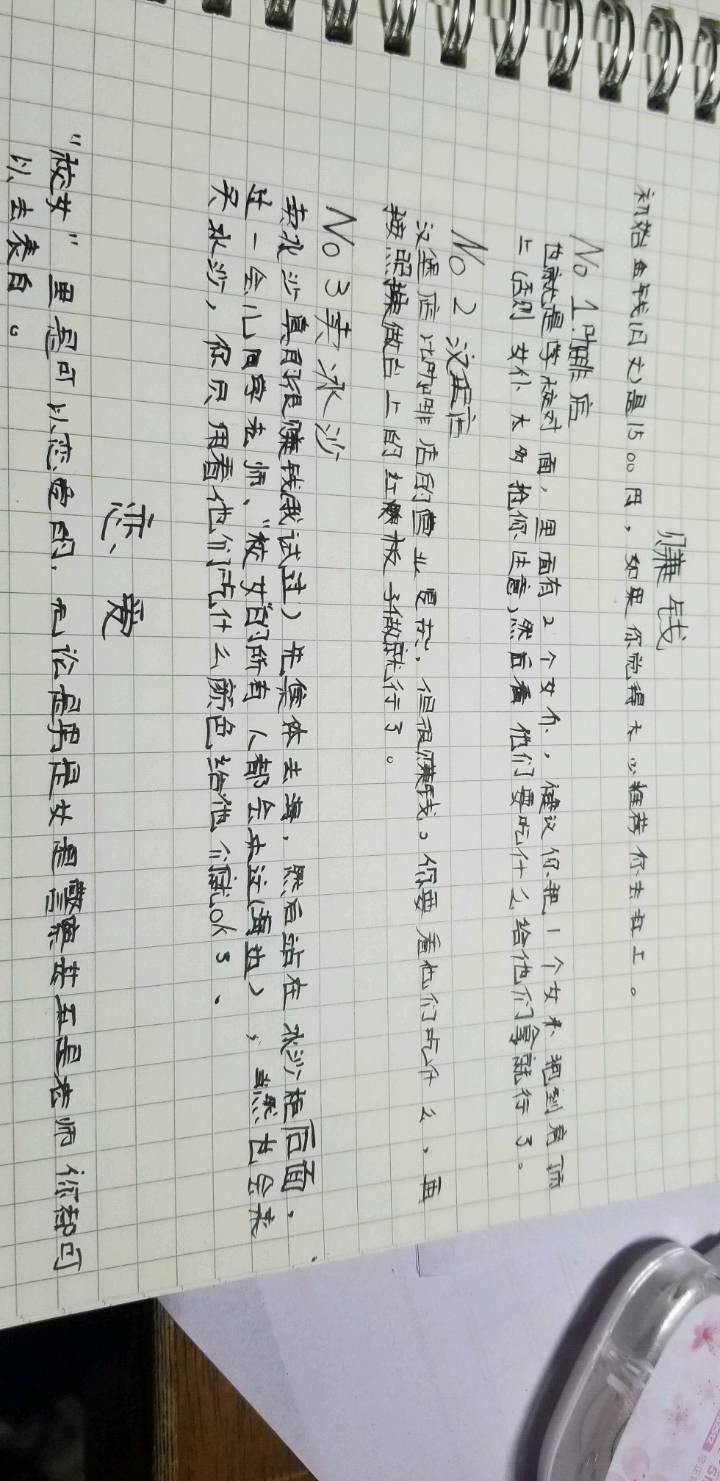 赚钱
初始金钱(日元)是1500円，如果你觉得太少推荐你去打工。
No 1.咖啡店
也就是学校对面，里面有2个女仆，建议你把1个女仆抱到房顶
上(否则女仆太多抢你生意)然后看他们要吃什么给他们拿就行了。
No 2 汉堡店
汉堡店比咖啡店的营业更忙，但很赚钱。你要看他们吃什么，再
按照操做台上的红案板子做就行了。
No 3 卖冰沙
卖冰沙真的很赚钱(我试过)先集体去海，然后站在冰沙柜后面.
过一会儿同学老师、"校女"的所有人都会来这(海边)，当然也会来
买冰沙，你只用看他们吃什么颜色给他们就ok了.
恋爱
"校女"里是可以恋爱的.无论是男是女是警察甚至是老师你都可
以去表白。